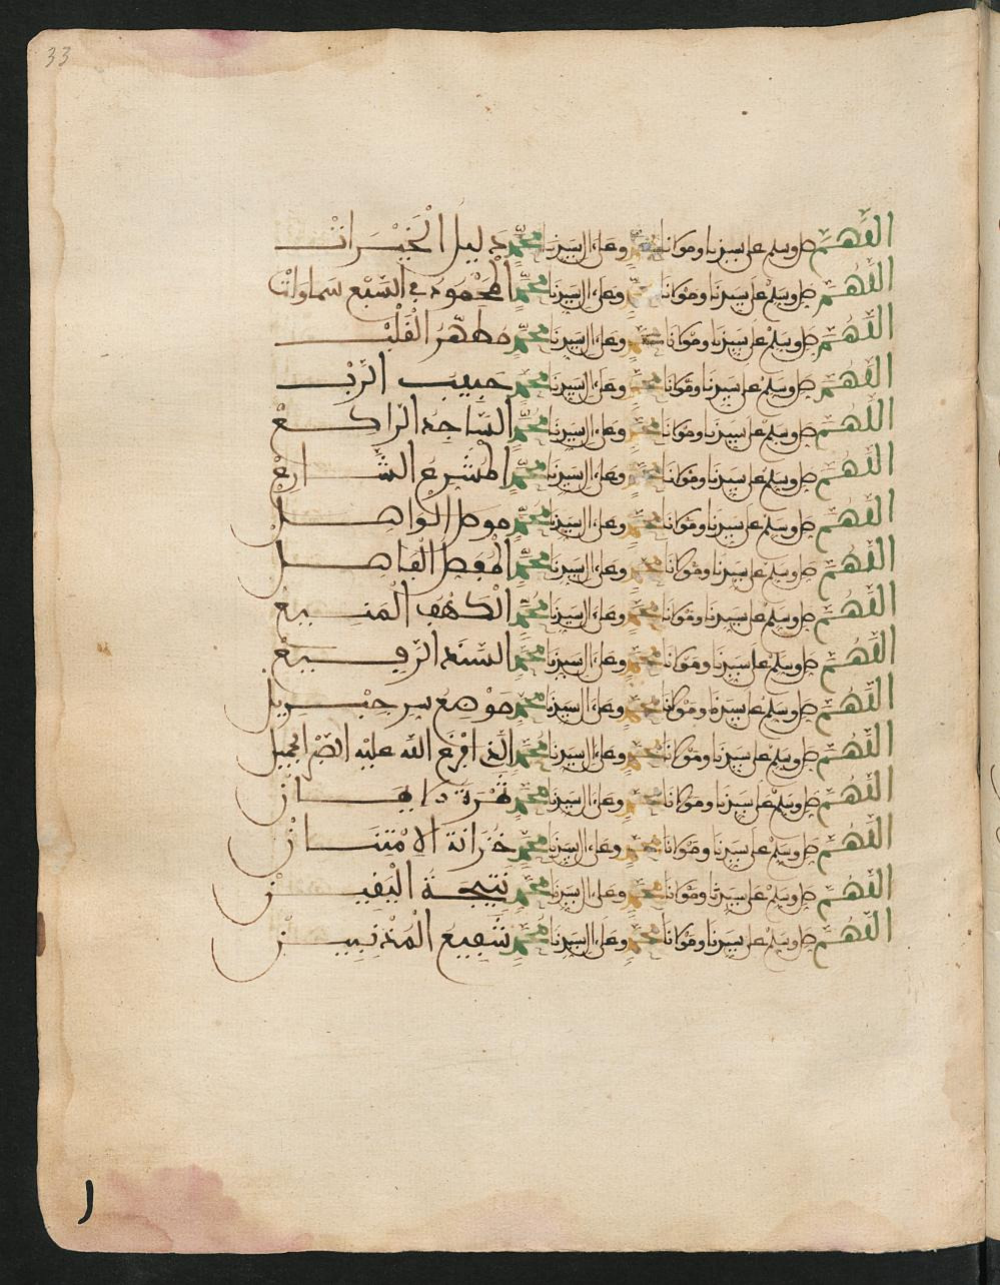 33
اللهم صل وسلم على سيدنا ومولانا محمد وعلى ال سيدنا محمد دليل الخيرات
اللهم صل وسلم على سيدنا ومولانا محمد وعلى ال سيدنا محمد المحمود في السبع سماوات
اللهم صل وسلم على سيدنا ومولانا محمد وعلى ال سيدنا محمد مطهر القلب
اللهم صل وسلم على سيدنا ومولانا محمد وعلى ال سيدنا محمد حبيب الرب
اللهم صل وسلم على سيدنا ومولانا محمد وعلى ال سيدنا محمد الساجد الراكع
اللهم صل وسلم على سيدنا ومولانا محمد وعلى ال سيدنا محمد المشرع الشارع
اللهم صل وسلم على سيدنا ومولانا محمد وعلى ال سيدنا محمد موصل الواصل
اللهم صل وسلم على سيدنا ومولانا محمد وعلى ال سيدنا محمد المفصل الفاصل
اللهم صل وسلم على سيدنا ومولانا محمد وعلى ال سيدنا محمد الكهف المنيع
اللهم صل وسلم على سيدنا ومولانا محمد وعلى ال سيدنا محمد السند الرفيع
اللهم صل وسلم على سيدنا ومولانا محمد وعلى ال سيدنا محمد موضع سر جبريل
اللهم صل وسلم على سيدنا ومولانا محمد وعلى ال سيدنا محمد الذي افرغ الله عليه الصبر الجميل
اللهم صل وسلم على سيدنا ومولانا محمد وعلى ال سيدنا محمد
اللهم صل وسلم على سيدنا ومولانا محمد وعلى ال سيدنا محمد خزانة الامتنان
اللهم صل وسلم على سيدنا ومولانا محمد وعلى ال سيدنا محمد نتيجة اليقين
اللهم صل وسلم على سيدنا ومولانا محمد وعلى ال سيدنا محمد شفيع المذنبين